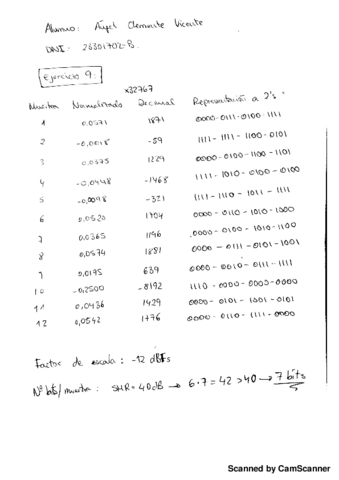 Alumno: Ángel Clemente Vicente
Ejercicio 9:
x32767
Muestra Normalizado Decimal Representación a 2's
1 0,0571 1871 0000-0111-0100-1111
2 -0,0018 -59 1111-1111-1100-0101
3 0,0375 1229 0000-0100-1100-1101
4 -0,0448 -1468 1111-1010-0100-0100
5 -0,0098 -321 1111-1110-1011-1111
6 0,0520 1704 0000-0110-1010-1000
7 0,0365 1196 0000-0100-1010-1100
8 0,0574 1881 0000-0111-0101-1001
9 0,0195 639 0000-0010-0111-1111
10 -0,2500 -8192 1110-0000-0000-0000
11 0,0436 1429 0000-0101-1001-0101
12 0,0542 1776 0000-0110-1111-0000
Factor de escala: -12 dBFs
Nº bits/muestra: SNR=40dB → 6·7=42>40 → 7 bits
Scanned by CamScanner